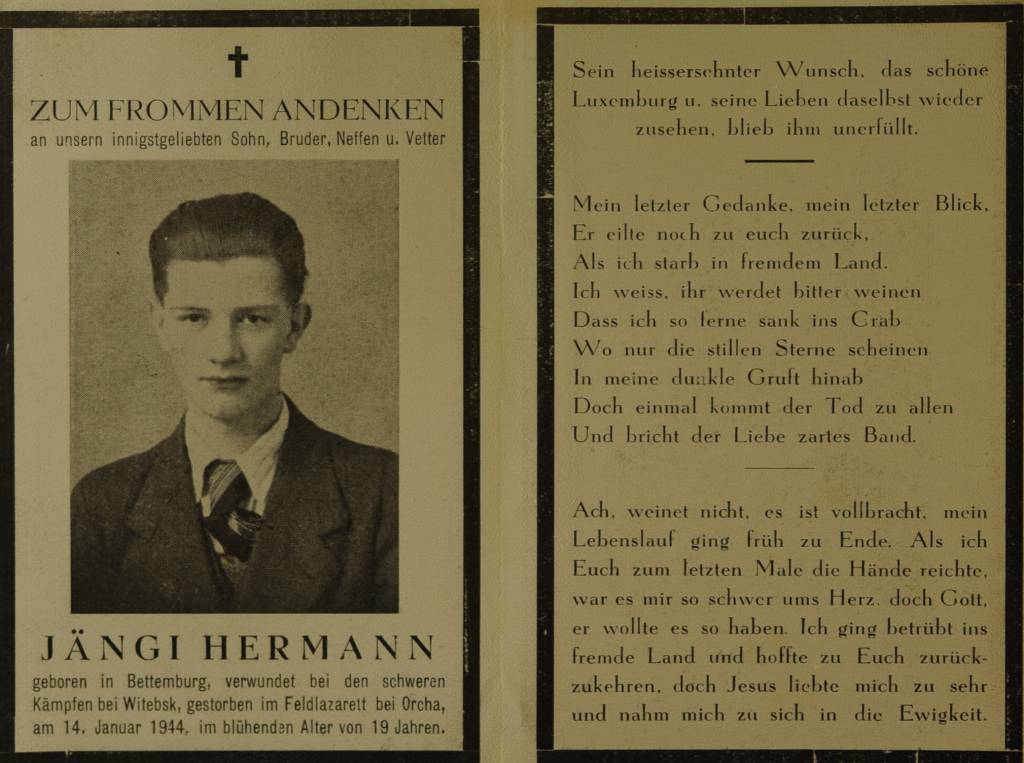 ZUM FROMMEN ANDENKEN
an unsern innigstgeliebten Sohn, Bruder, Neffen u. Vetter
JÄNGI HERMANN
geboren in Bettemburg, verwundet bei den schweren
Kämpfen bei Witebsk, gestorben im Feldlazarett bei Orcha,
am 14. Januar 1944, im blühenden Alter von 19 Jahren.
Sein heissersehnter Wunsch, das schöne
Luxemburg u. seine Lieben daselbst wieder
zusehen, blieb ihm unerfüllt.
Mein letzter Gedanke, mein letzter Blick,
Er eilte noch zu euch zurück,
Als ich starb in fremdem Land.
Ich weiss, ihr werdet bitter weinen
Dass ich so ferne sank ins Grab
Wo nur die stillen Sterne scheinen
In meine dunkle Gruft hinab
Doch einmal kommt der Tod zu allen
Und bricht der Liebe zartes Band.
Ach, weinet nicht, es ist vollbracht, mein
Lebenslauf ging früh zu Ende. Als ich
Euch zum letzten Male die Hände reichte,
war es mir so schwer ums Herz, doch Gott,
er wollte es so haben. Ich ging betrübt ins
fremde Land und hoffte zu Euch zurück-
zukehren, doch Jesus liebte mich zu sehr
und nahm mich zu sich in die Ewigkeit.